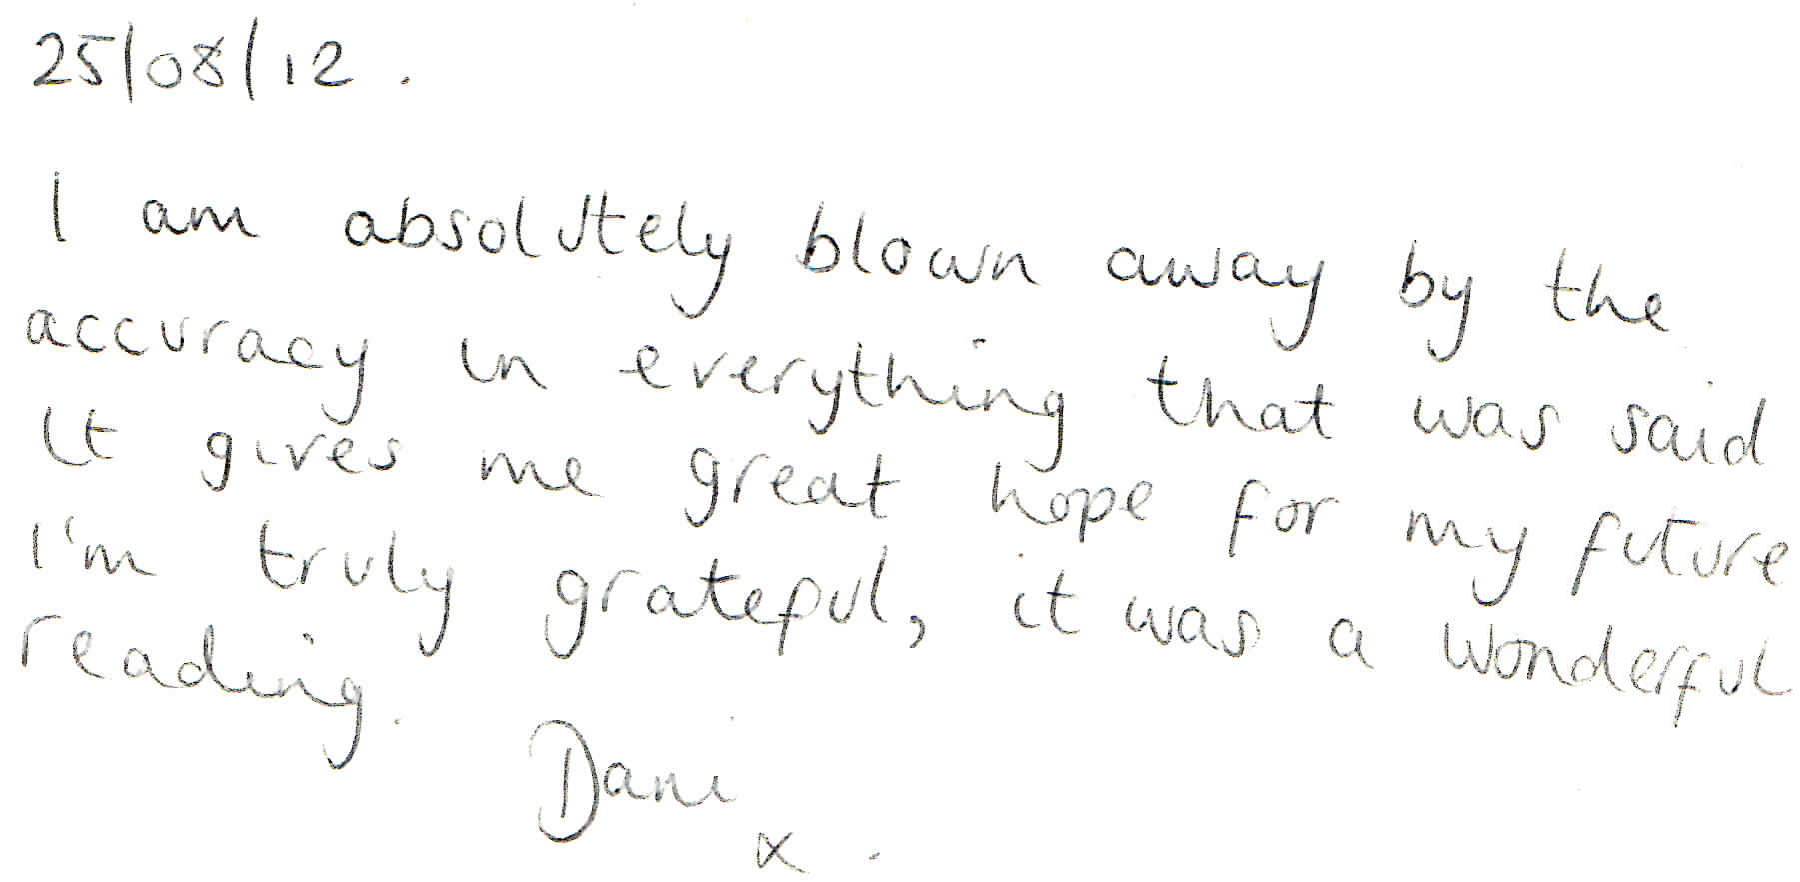 25/08/12.
I am absolutely blown away by the
accuracy in everything that was said
It gives me great hope for my future
I'm truly grateful, it was a wonderful
reading.
Dani
x.